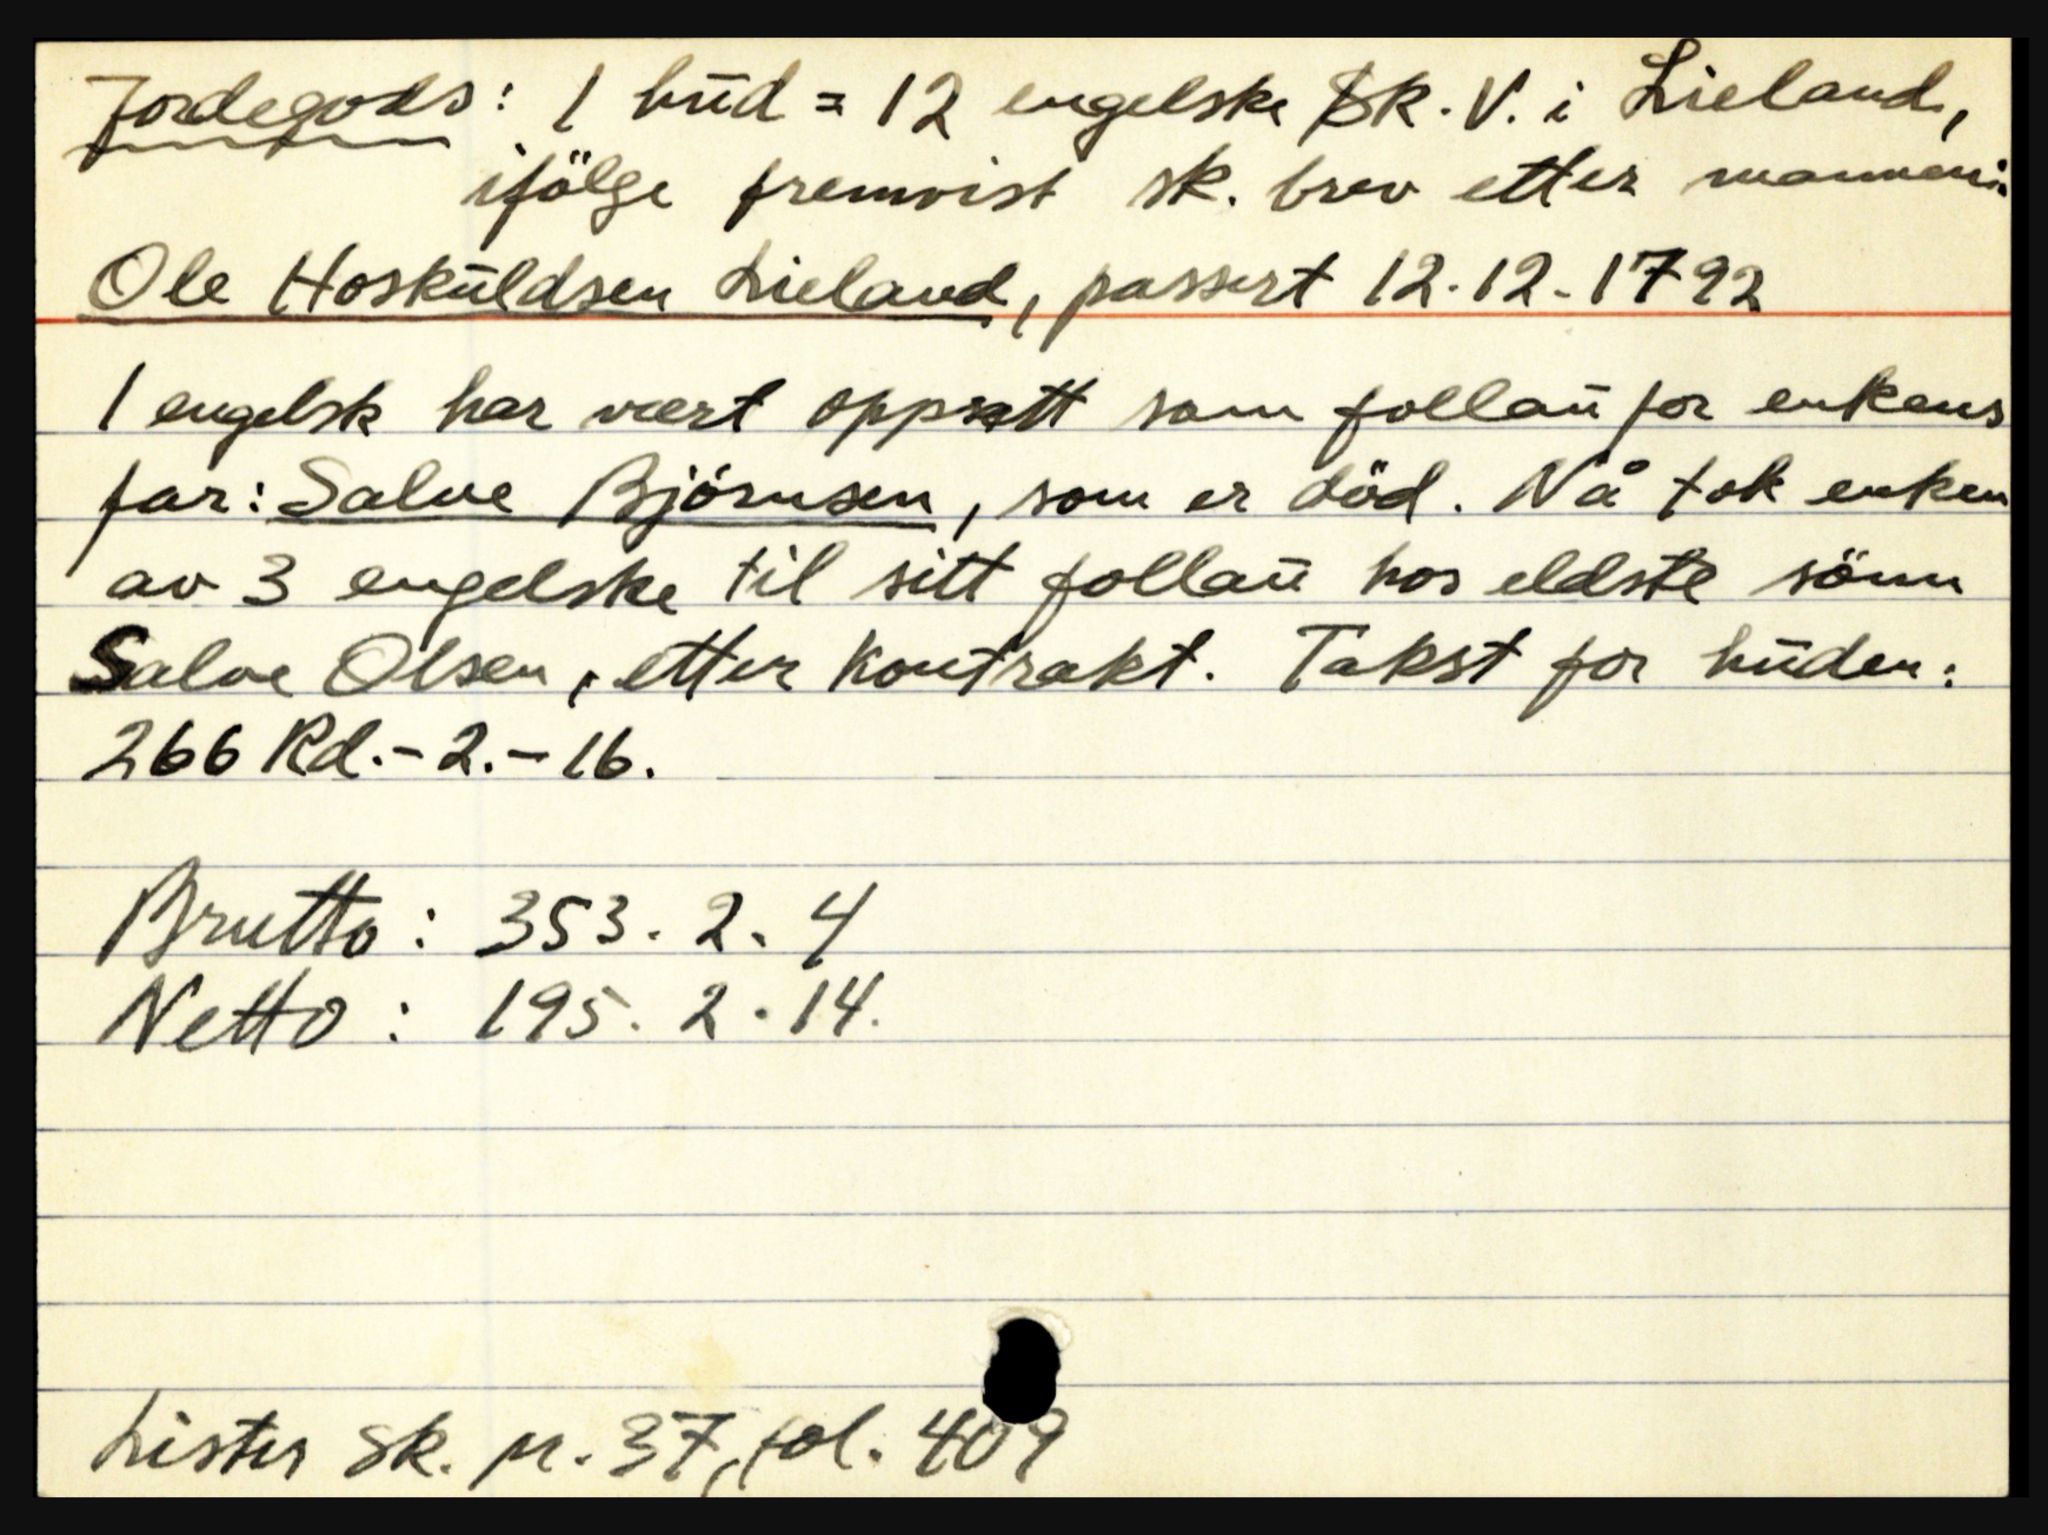 Jordegods: 1 hūd = 12 engelske Sk. V. i Lieland,
ifölge fremvist sk. brev etter mannen:
Ole Hoskūldsen Lieland, passert 12.12.1792
1 engelsk har vært oppsatt som follaū for enkens
far: Salve Björnsen, som er död. Nå tok enken
av 3 engelske til sitt follaū hos eldste sönn
Salve Olsen, etter kontrakt. Takst for hūden:
266 Rd.-2.-16.
Brutto: 353. 2. 4
Netto: 195. 2. 14.
Lister sk. pr. 37, fol. 409